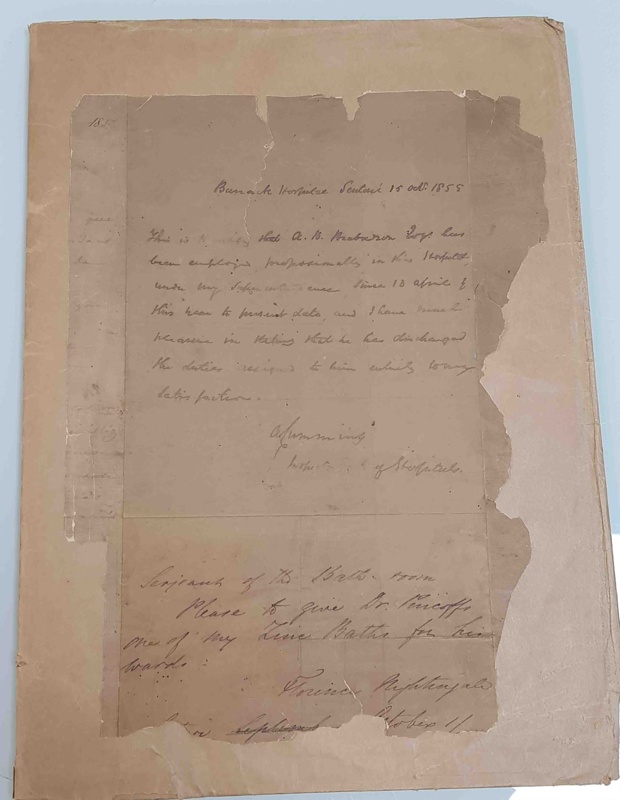 185
Barrack Hospital Scutari 15 Octr 1855
This is to that A. B. Esqr has
been employed professionally in this Hospital,
under my since 13 April of
this year to present date, and I have much
pleasure in stating that he has discharged
the duties to him entirely to my
satisfaction.
A Cumming
of Hospitals.
Serjeant of the Bath-room
Please to give Dr. Pincoffs
one of my Zinc Baths for his
wards.
Florence Nightingale
October 11